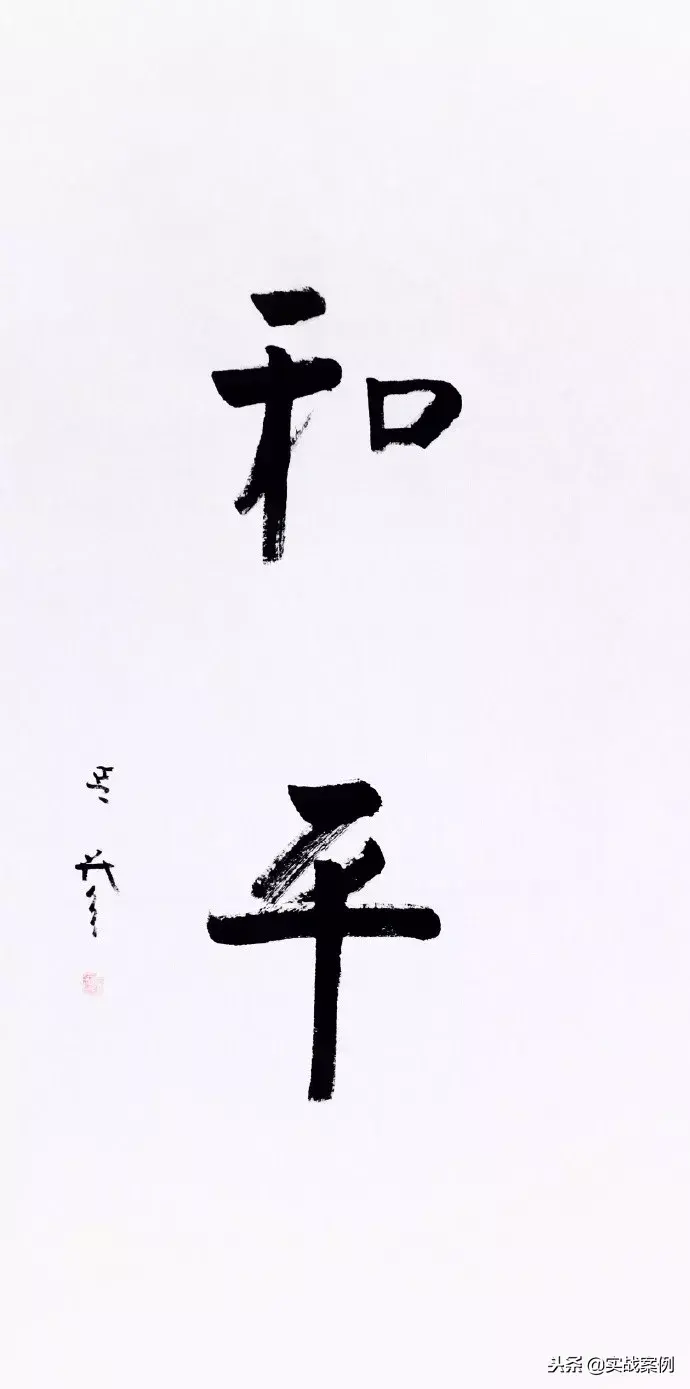 和
平
头条 @实战案例